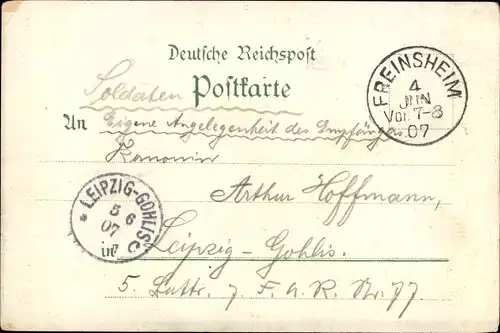 Deutsche Reichspost
Soldaten Postkarte
FREINSHEIM
4
JUN
Vor. 7-8
07
An Eigene Angelegenheit des Empfängers
Kanonier
Arthur Hoffmann,
LEIPZIG-GOHLIS
5 6
07
7
C
in Leipzig-Gohlis.
5. Battr. 7. F. a. R. Nr. 77